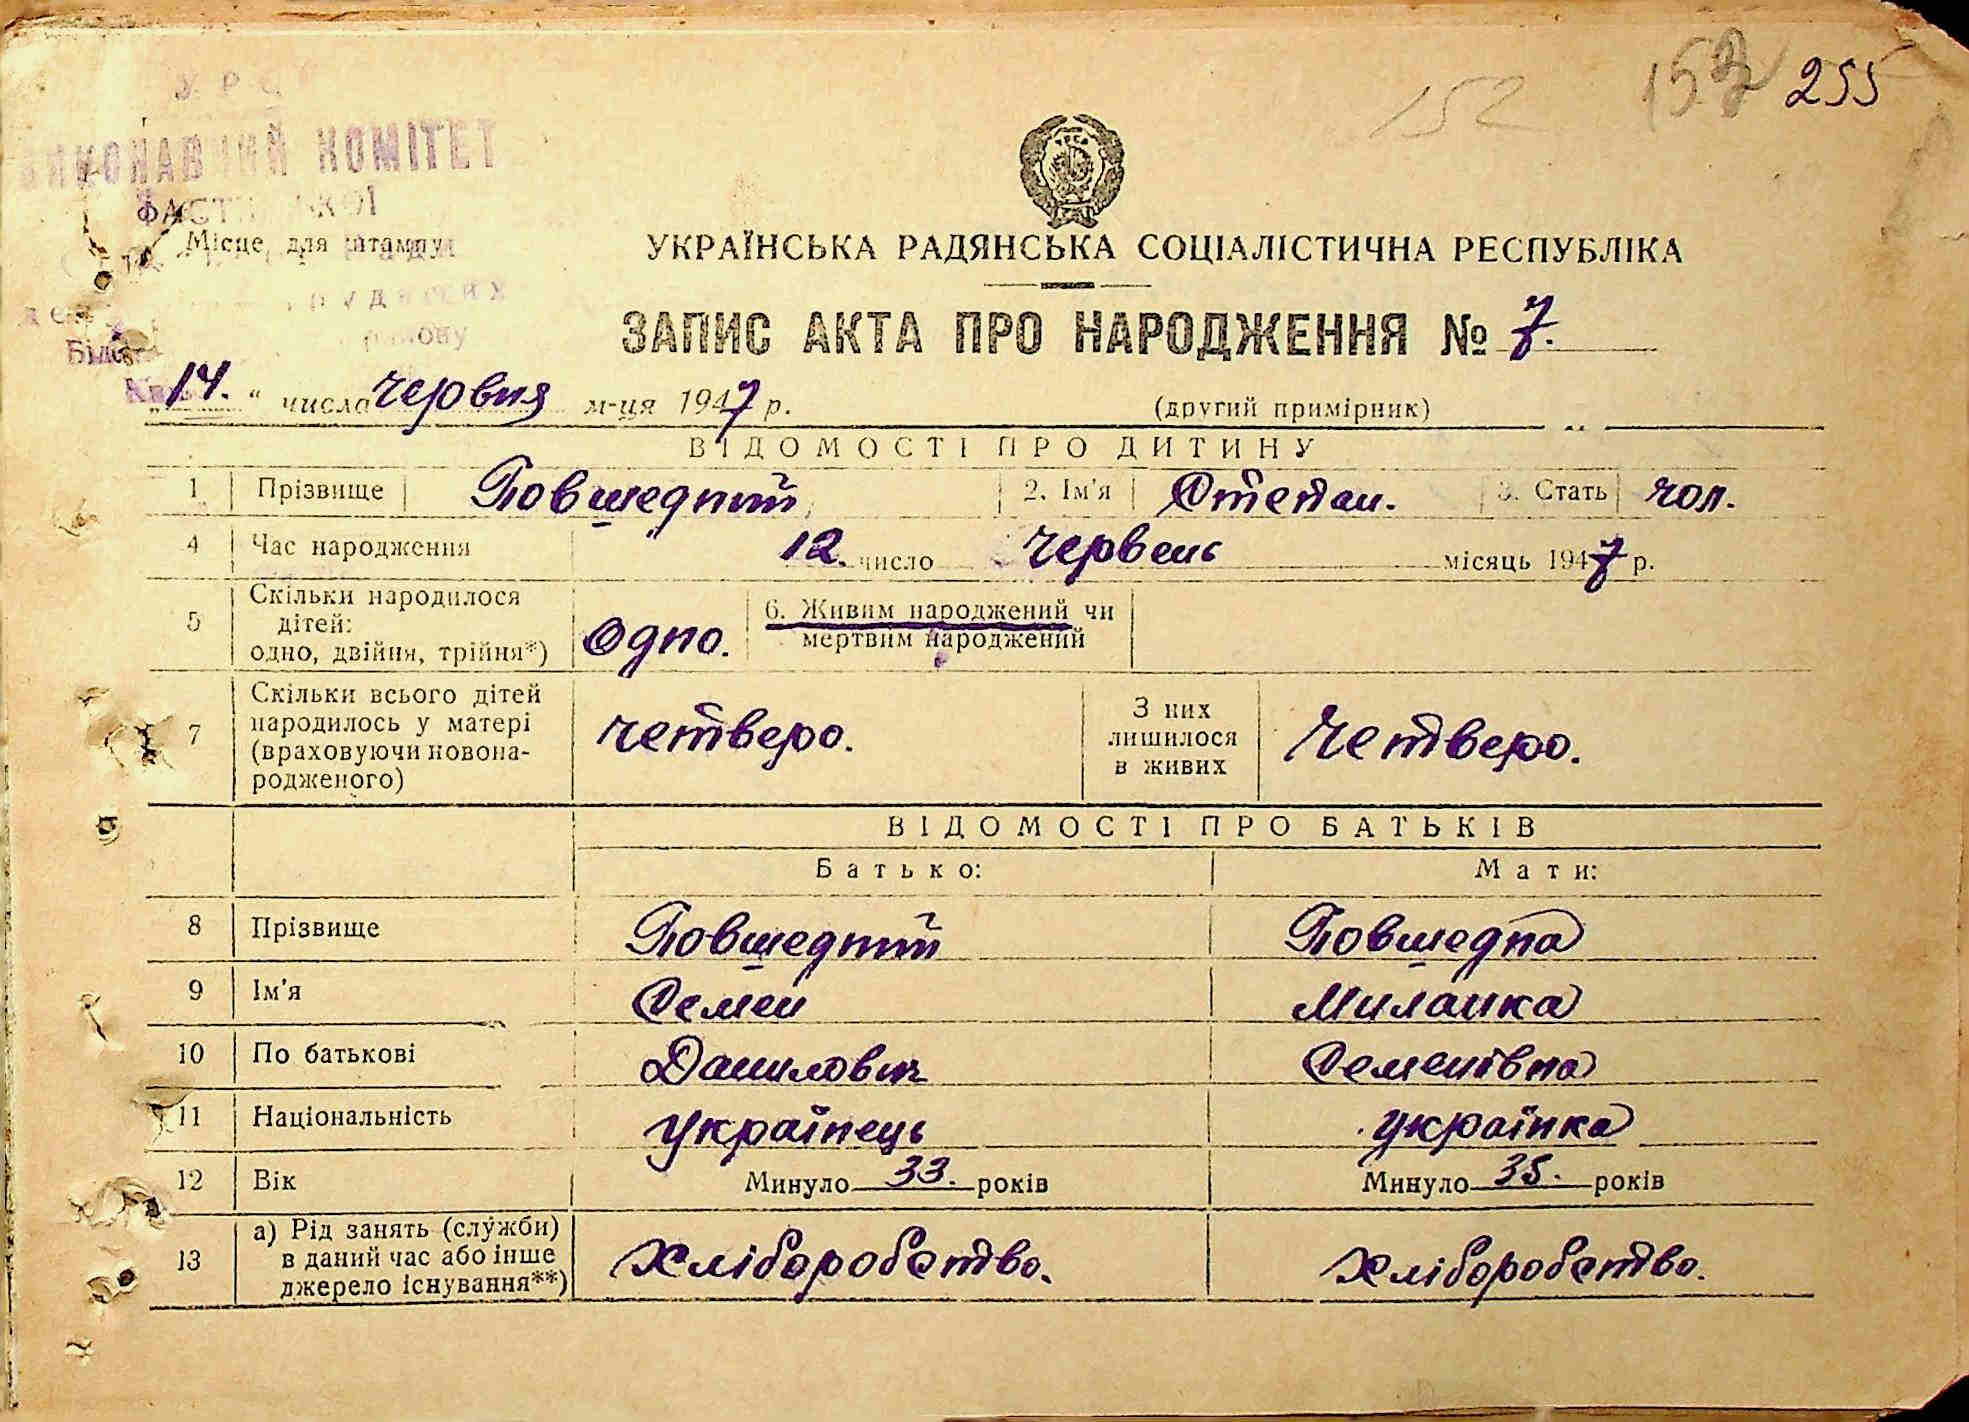 152 153 255
У Р С
ВИКОНАВЧИЙ КОМІТЕТ
Місце для штампу
району
УКРАЇНСЬКА РАДЯНСЬКА СОЦІАЛІСТИЧНА РЕСПУБЛІКА
ЗАПИС АКТА ПРО НАРОДЖЕННЯ № 7.
„14.“ числа червня м-ця 1947 р. (другий примірник)
ВІДОМОСТІ ПРО ДИТИНУ
1 Прізвище Повшедний 2. Ім'я Степан. 3. Стать чол.
4 Час народження 12. число Червень місяць 1947 р.
5 Скільки народилося дітей: одно, двійня, трійня*) Одно. 6. Живим народжений чи мертвим народжений
7 Скільки всього дітей народилось у матері (враховуючи новона-родженого) четверо. З них лишилося в живих Четверо.
ВІДОМОСТІ ПРО БАТЬКІВ
Батько: Мати:
8 Прізвище Повшедний Повшедна
9 Ім'я Семен Миланка
10 По батькові Данилович Семенівна
11 Національність Українець українка
12 Вік Минуло 33. років Минуло 35. років
13 а) Рід занять (служби) в даний час або інше джерело існування**) Хліборобство. Хліборобство.